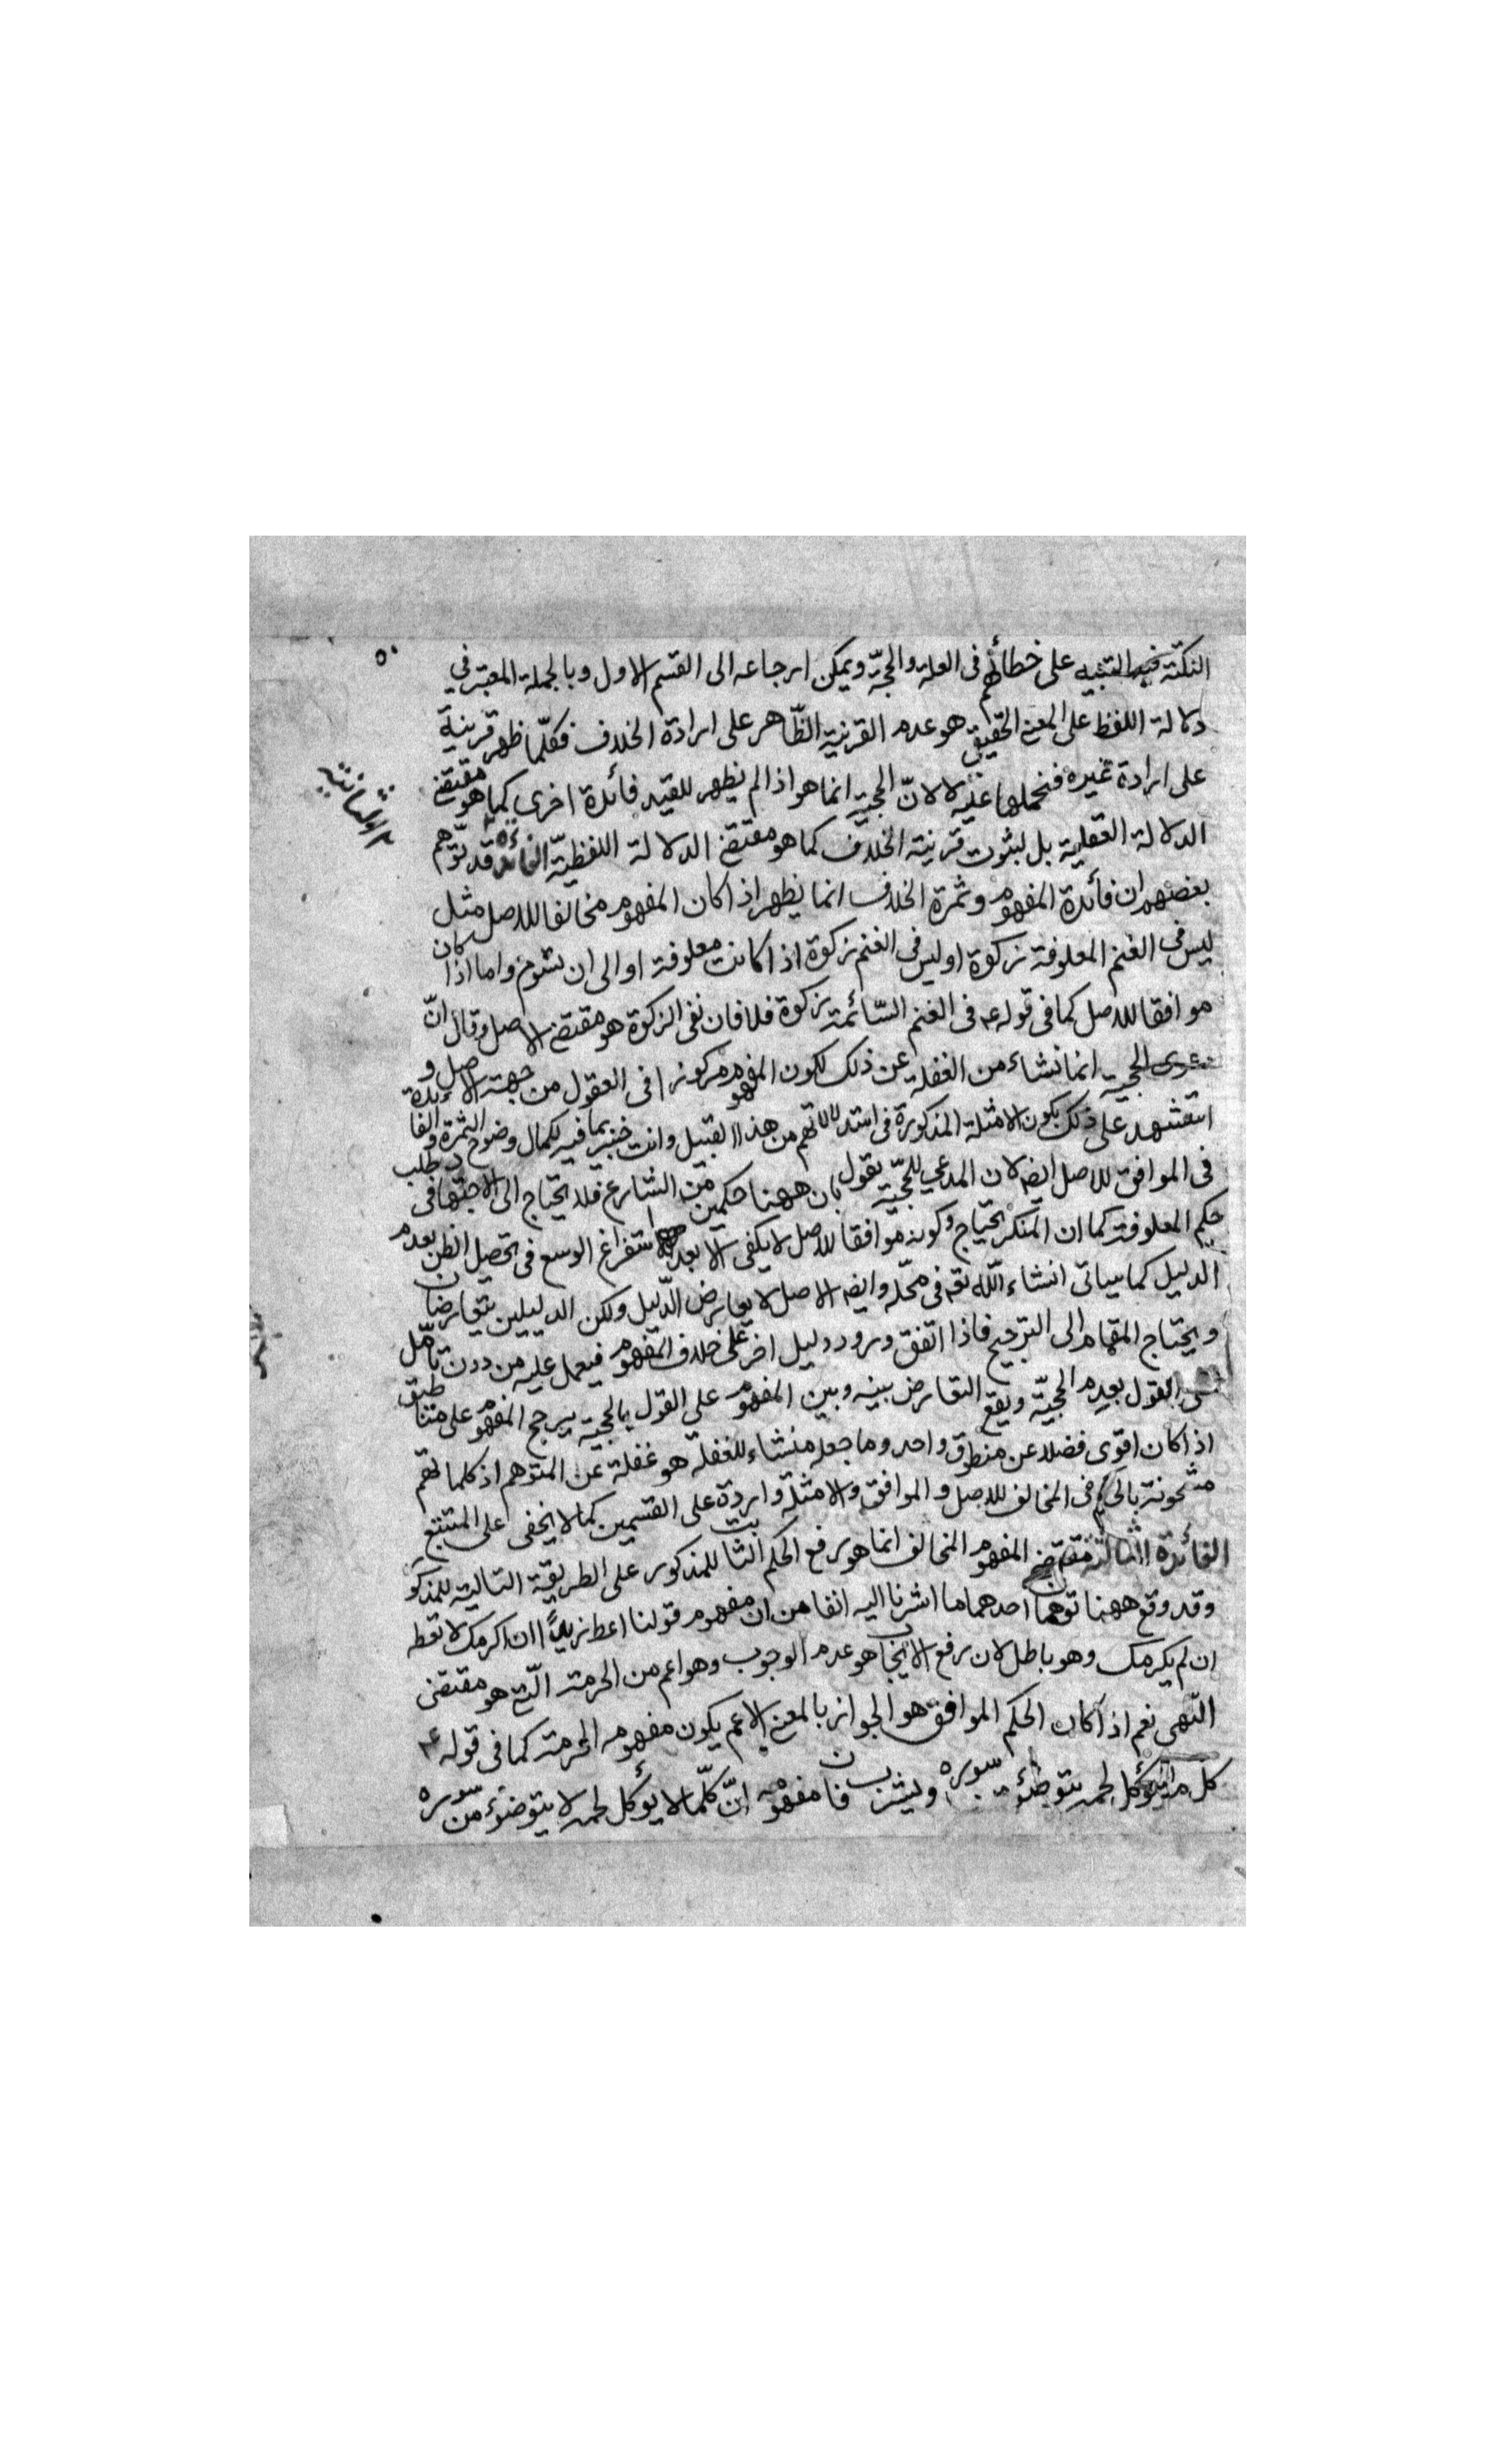 النكتة فيه التنبيه على خطائهم فى العلة والحجّة ويمكن ارجاعه الى القسم الاول وبالجملة المعتبر في
دلالة اللفظ على المعنى الحقيقي هو عدم القرينة الظّاهر على ارادة الخلاف فكلّما ظهر قرينة
على ارادة غيره فنحملها عليه لا لانّ الحجية انما هو اذا لم يظهر للقيد فائدة اخرى كما هو مقتضى
الدلالة العقلية بل لثبوت قرينة الخلاف كما هو مقتضى الدلالة اللفظيّة الفائدة الثانية قد توّهم
بعضهم ان فائدة المفهوم وثمرة الخلاف انما يظهر اذا كان المفهوم مخالفا للاصل مثل
ليس فى الغنم المعلوفة زكوة او ليس فى الغنم زكوة اذا كانت معلوفة او الى ان تسوم واما اذا كان
موافقا للاصل كما فى قوله ع فى الغنم السّائمة زكوة فلا فان نفى الزكوة هو مقتضى الاصل وقال انّ
دعوى الحجية انما نشاء من الغفلة عن ذلك لكون المفهوم مركوزا فى العقول من جهة الاصل و
استشهد على ذلك بكون الامثلة المذكورة فى استدلالاتهم من هذا القبيل وانت خبير بما فيه لكمال وضوح الثمرة والفائدة
فى الموافق للاصل ايضا لان المدعي للحجّية يقول بان ههنا حكمين من الشارع فلا يحتاج الى الاجتهاد فى طلب
حكم المعلوفة كما ان المنكر يحتاج وكونه موافقا للاصل لا يكفى الا بعد استفراغ الوسع فى تحصيل الظن بعدم
الدليل كما سياتى انشاء اللّه تعه فى محّله وايضه الاصل لا يعارض الدّليل ولكن الدليلين يتعارضان
ويحتاج المقام الى الترجيح فاذا اتفق ورود دليل اخر على خلاف المفهوم فيعمل عليه من دون تامّل
على القول بعدم الحجيّة ويقع التعارض بينه وبين المفهوم على القول بالحجية يرجح المفهوم على منطق
اذا كان اقوى فضلا عن منطوق واحد وما جعله منشاء للغفلة هو غفلة عن المتوهم اذ كلماتهم
مشحونة بالحكم فى المخالف للاصل والموافق والامثلة واردة على القسمين كما لا يخفى على المتتبع
الفائدة الثالثة مقتضى المفهوم المخالف انما هو رفع الحكم الثابت للمذكور على الطريقة الثابتة للمذكور
وقد وقع ههنا توهمان احدهما ما اشرنا اليه انفا من ان مفهوم قولنا اعط زيداً ان اكرمك لا تعطه
ان لم يكرمك وهو باطل لان رفع الايجاب هو عدم الوجوب وهو اعم من الحرمة الّتي هو مقتضى
النّهى نعم اذا كان الحكم الموافق هو الجواز بالمعنى الاعم يكون مفهومه الحرمة كما فى قوله ع
كل ما يؤكل لحمه يتوضؤ من سوره ويشرب فان مفهومه انّ كلّما لا يؤكل لحمه لا يتوضؤ من سوره